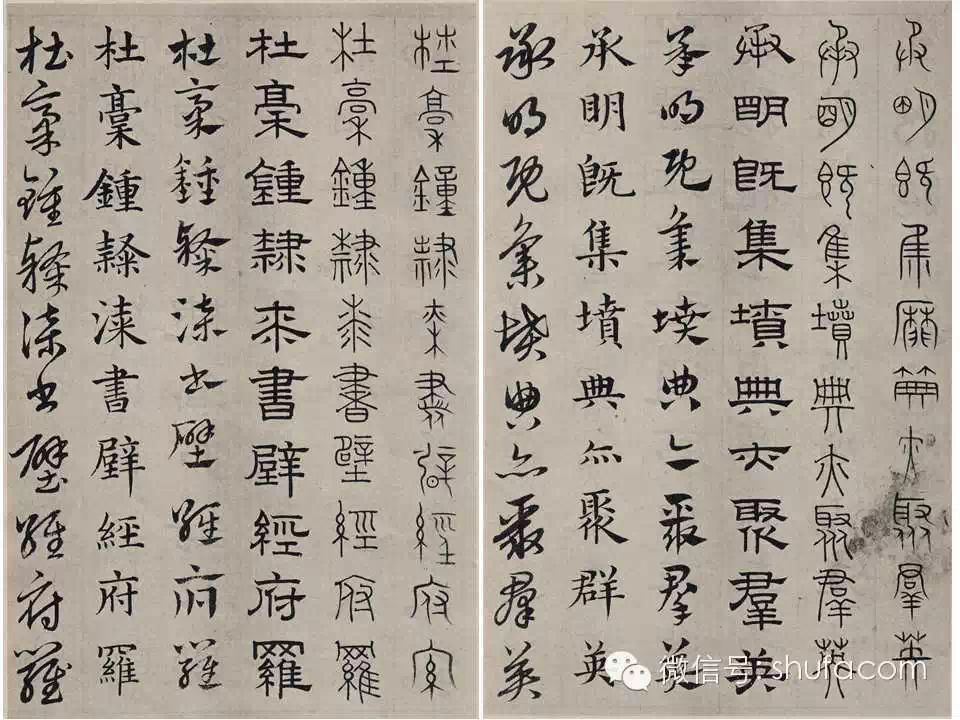 承明既集墳典亦聚羣英
承明既集墳典亦聚羣英
承明既集墳典亦聚羣英
承明既集墳典亦聚群英
承明既集墳典亦聚群英
承明既集墳典亦聚群英
杜稾鍾隸桼書壁經府羅
杜稾鍾隸桼書壁經府羅
杜稾鍾隸桼書壁經府羅
杜稾鍾隸漆書壁經府羅
杜稾鍾隸漆書壁經府羅
杜稾鍾隸漆書壁經府羅
微信号: shufa.com